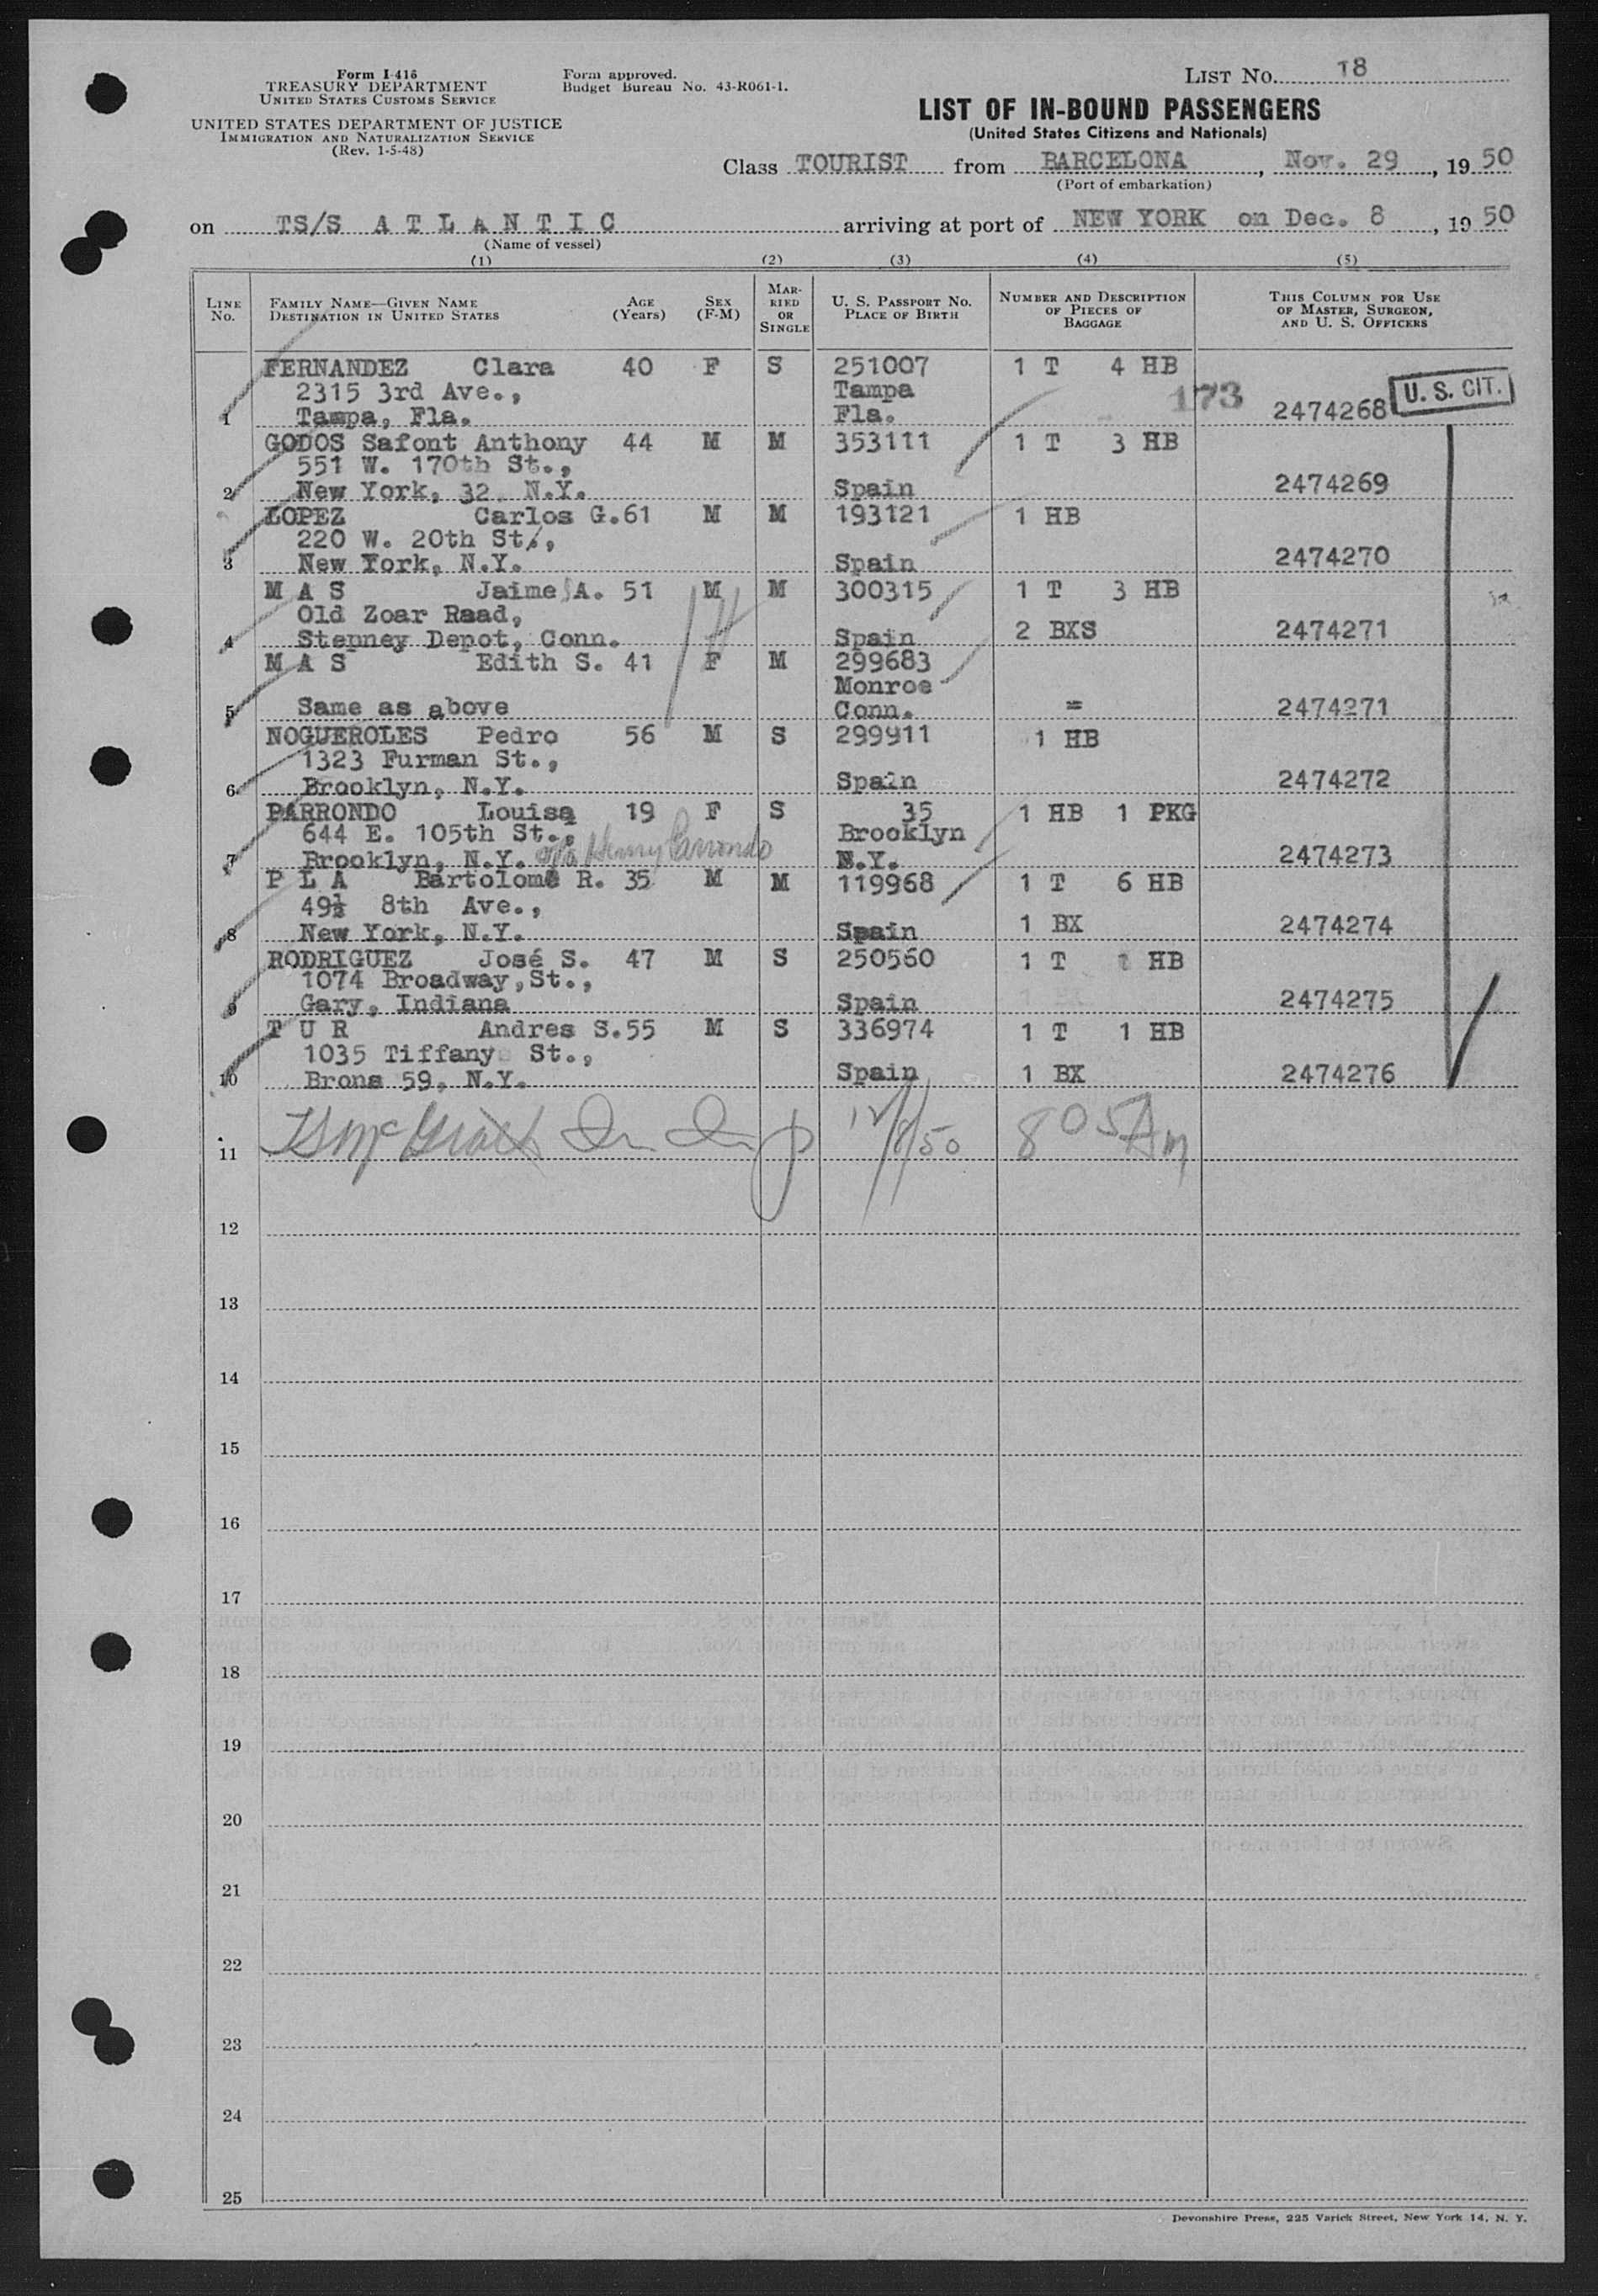 Form I-416
TREASURY DEPARTMENT
UNITED STATES CUSTOMS SERVICE
UNITED STATES DEPARTMENT OF JUSTICE
IMMIGRATION AND NATURALIZATION SERVICE
(Rev. 1-5-48)
Form approved.
Budget Bureau No. 43-R061-1.
LIST No. 18
LIST OF IN-BOUND PASSENGERS
(United States Citizens and Nationals)
Class TOURIST from BARCELONA, Nov. 29, 1950
(Port of embarkation)
on TS/S ATLANTIC arriving at port of NEW YORK on Dec. 8, 1950
(Name of vessel)
(1) (2) (3) (4) (5)
LINE No. FAMILY NAME—GIVEN NAME DESTINATION IN UNITED STATES AGE (Years) SEX (F-M) MARRIED OR SINGLE U. S. PASSPORT No. PLACE OF BIRTH NUMBER AND DESCRIPTION OF PIECES OF BAGGAGE THIS COLUMN FOR USE OF MASTER, SURGEON, AND U. S. OFFICERS
FERNANDEZ Clara 40 F S 251007 1 T 4 HB
2315 3rd Ave., Tampa 173 U. S. CIT.
1 Tampa, Fla. Fla. 2474268
GODOS Safont Anthony 44 M M 353111 1 T 3 HB
551 W. 170th St.,
2 New York, 32 N.Y. Spain 2474269
LOPEZ Carlos G. 61 M M 193121 1 HB
220 W. 20th St.,
3 New York, N.Y. Spain 2474270
M A S Jaime A. 51 M M 300315 1 T 3 HB
Old Zoar Raad,
4 Stepney Depot, Conn. Spain 2 BXS 2474271
M A S Edith S. 41 F M 299683
Monroe
5 Same as above Conn. = 2474271
NOGUEROLES Pedro 56 M S 299911 1 HB
1323 Furman St.,
6 Brooklyn, N.Y. Spain 2474272
PARRONDO Louisa 19 F S 35 1 HB 1 PKG
644 E. 105th St., Brooklyn
7 Brooklyn, N.Y. Henry Parrondo N.Y. 2474273
P L A Bartolome R. 35 M M 119968 1 T 6 HB
49½ 8th Ave.,
8 New York, N.Y. Spain 1 BX 2474274
RODRIGUEZ José S. 47 M S 250560 1 T 1 HB
1074 Broadway,St.,
9 Gary, Indiana Spain 2474275
T U R Andres S. 55 M S 336974 1 T 1 HB
1035 Tiffany St.,
10 Brons 59, N.Y. Spain 1 BX 2474276
12/8/50 8 05 Am
11
12
13
14
15
16
17
18
19
20
21
22
23
24
25
Devonshire Press, 225 Varick Street, New York 14, N. Y.